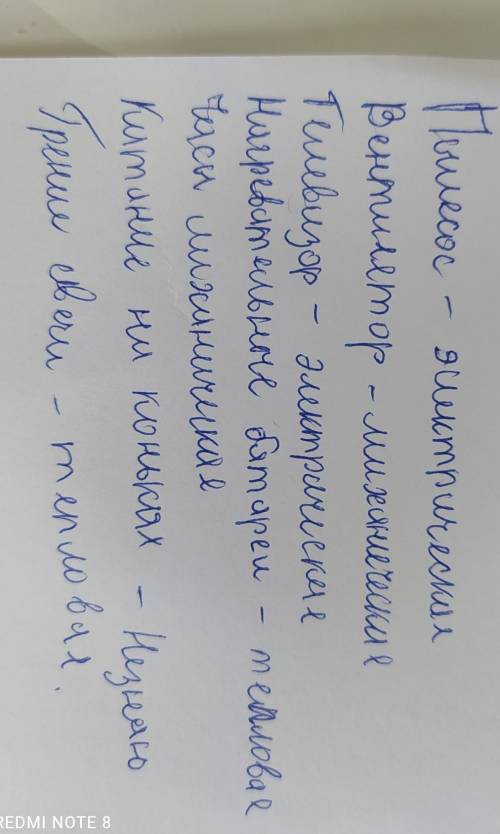 Пылесос - электрическая
Вентилятор - механические
Телевизор - электрическая
Нагревательные батареи - тепловая
Часы механическая
Катание на коньках - Незнаю
Трение свечи - тепловая.
REDMI NOTE 8